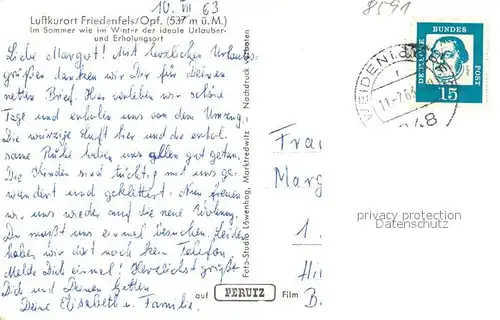 10. VII 63
8591
Luftkurort Friedenfels/Opf. (537 m ü. M.)
Im Sommer wie im Winter der ideale Urlauber-
und Erholungsort
Liebe Margot! Mit herzlichen Urlaubs-
grüßen danken wir Dir für deinen
netten Brief. Hier verleben wir schöne
Tage und erholen uns von dem Umzug.
Die würzige Luft hier und die erhol-
same Ruhe haben uns allen gut getan.
Die Kinder sind tüchtig mit uns ge-
wandert und geklettert. Nun freuen
wir uns wieder auf die neue Wohnung.
Du mußt uns einmal besuchen. Leider
haben wir dort noch kein Telefon
Melde Dich einmal! Herzlichst grüßt
Dich und Deinen Gatten
Deine Elisabeth u. Familie.
Foto-Studio Löwenhag, Marktredwitz Nachdruck verboten
auf PERUTZ Film
DEUTSCHE BUNDES POST
15
WEIDEN
11.-7.63
Frau
Marg
1.
B.
privacy protection
Watermark